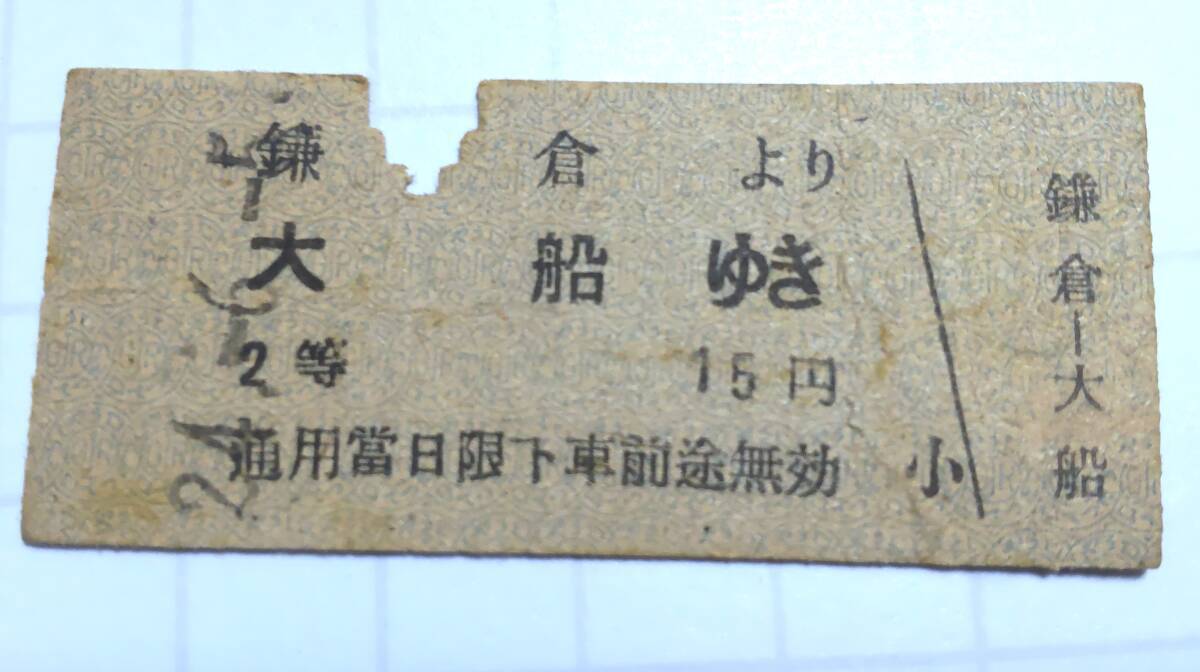 鎌倉より
大船ゆき
2等 15円
通用當日限下車前途無効 小
鎌倉―大船